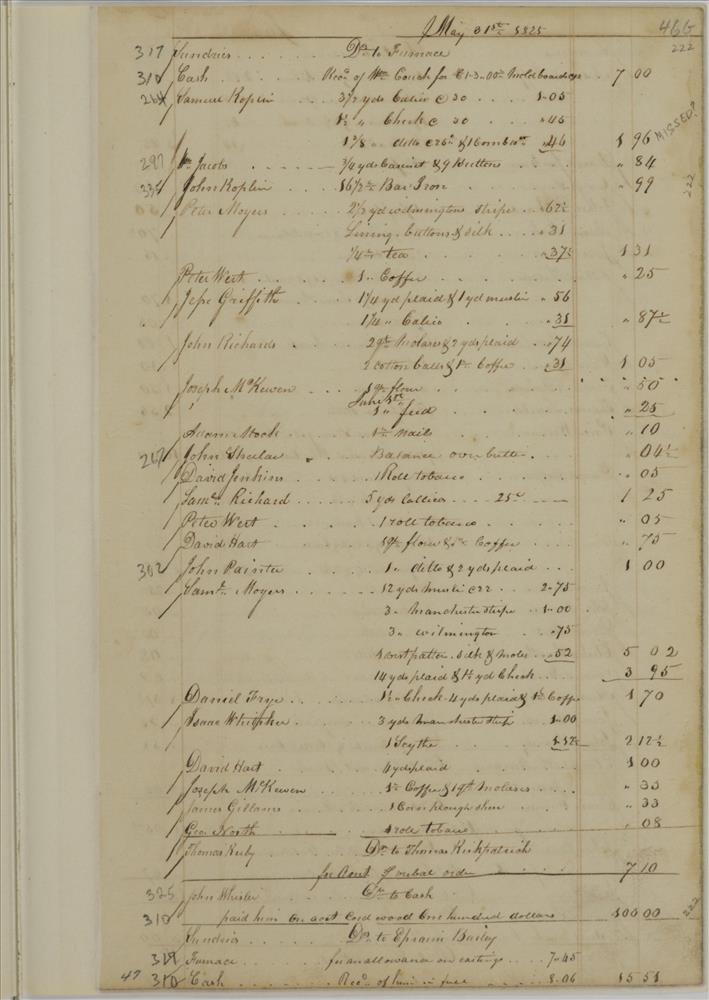 May 31st 1825 466
222
317 Sundries Dr. to Furnace
310 Cash Recd of Wm Couch for Mold boards 7 00
264 Samuel Koplin 3 1/2 yds Calico @ 30 1.05
1 1/2 " Check @ 30 " 45
1 3/8 " ditto & 1 Comb " 46 1 96 MISSED?
297 Wm Jacobs 3/4 yds Cassinet & 9 Buttons " 84
335 John Koplin 16 1/2 lb Bar Iron " 99 222
Peter Moyers 2 1/2 yd wilmington stripe " 62 1/2
Lining, buttons & silk " 31
1/4 lb tea " 37 1/2 1 31
Peter Wert 1 " Coffee " 25
Jesse Griffith 1 1/4 yd plaid & 1 yd muslin " 56
1 1/4 " Calico " 31 " 87 1/2
John Richards 2 qts Molases & 2 yds plaid " 74
2 cotton balls & 1 lb Coffee " 31 1 05
Joseph McKewen 1 qr flour " 50
June 1st
" 1 " feed " 25
Adam Mock 1 lb nails " 10
267 John Sheeler Balance over butter " 04 1/2
David Jenkins 1 Roll tobacco " 05
Saml Richard 5 yds Callico 25c 1 25
Peter Wert 1 roll tobacco " 05
David Hart 1 qr flour & 1 lb Coffee " 75
302 John Painter 1 " ditto & 2 yds plaid 1 00
Saml Moyers 12 yds muslin @ 22 2.75
3 " manchester stripe 1.00
3 " wilmington " 75
1 vest pattern, silk & molds " 52 5 02
14 yds plaid & 1 1/2 yd Check 3 95
Daniel Frye 1 1/2 " Check 4 yds plaid & 1 lb Coffee 1 70
Isaac Whipker 3 yds manchester stripe 1.00
1 Scythe 1.12 1/2 2 12 1/2
David Hart 4 yds plaid 1 00
Joseph McKewen 1 lb Coffee & 1 qt Molases " 33
James Gillams 1 Corn plough shear " 33
Geo North 1 role tobacco " 08
Thomas Kerby Dr. to Thomas Kirkpatrick
for Acct of verbal order 7 10
325 John Whisler Dr. to Cash
310 paid him on acct Cord wood One hundred dollars 100 00 222
Sundries Dr. to Ephraim Bailey
317 Furnace for an allowance on castings 7.45
47 310 Cash Recd of him in full 8.06 15 51